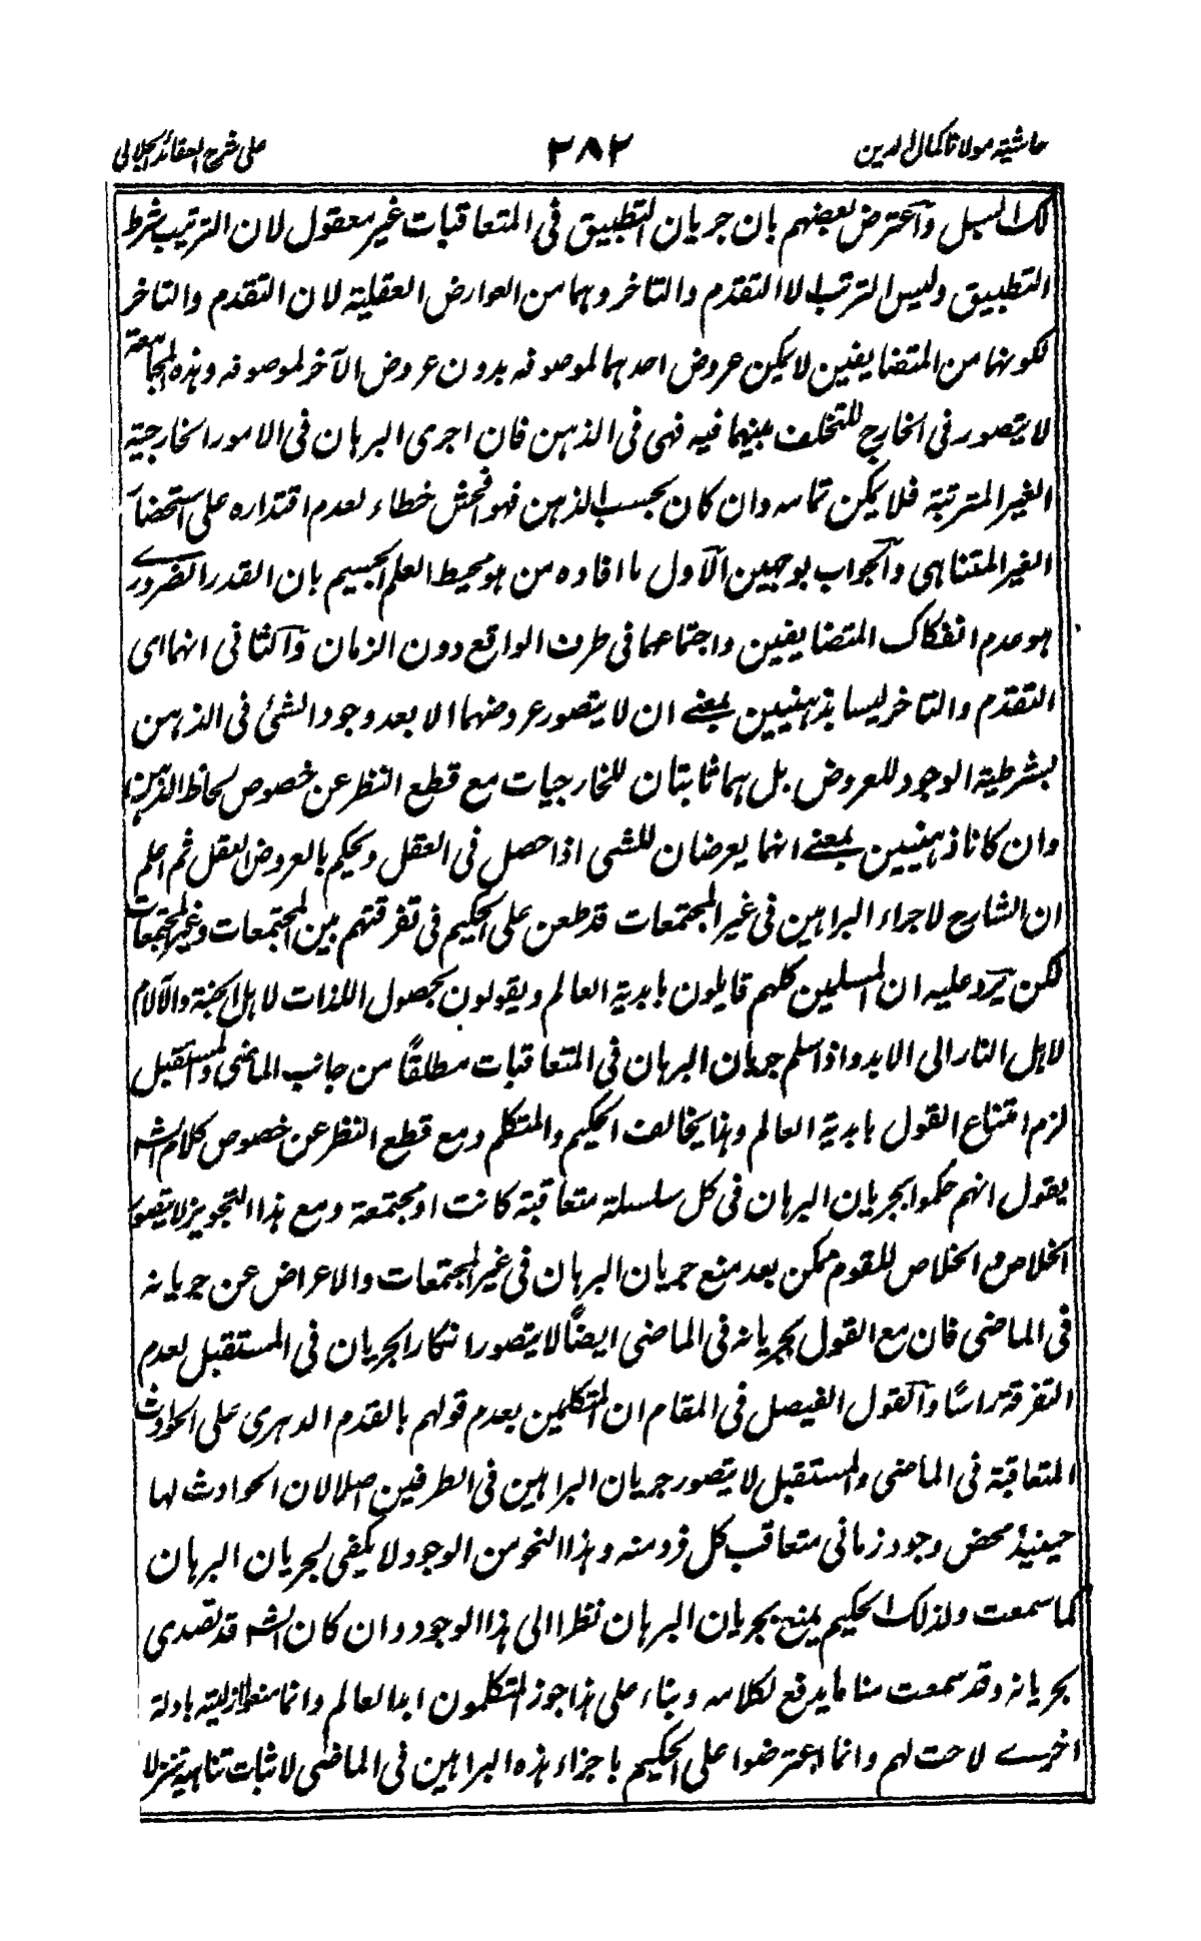 حاشية مولانا كمال الدين
٢٨٢
على شرح العقائد الجلالى
لك السبل وآعترض بعضهم بان جريان التطبيق فى المتعاقبات غير معقول لان الترتيب شرط
التطبيق وليس الترتب الا التقدم والتاخر وهما من العوارض العقلية لان التقدم والتاخر
لكونهما من المتضايفين لا يمكن عروض احدهما لموصوفه بدون عروض الآخر لموصوفه وهذه المجامعة
لا يتصور فى الخارج للتخلف بينهما فيه فهى فى الذهن فان اجرى البرهان فى الامور الخارجية
الغير المترتبة فلا يمكن تمامه وان كان بحسب الذهن فهو افحش خطاء لعدم اقتداره على استحضار
الغير المتناهى وآلجواب بوجهين آلاول ما افاده من هو محيط العلم الجسيم بان القدر الضرورے
هو عدم انفكاك المتضايفين واجتماعهما فى ظرف الواقع دون الزمان وآلثانى انهما اى
التقدم والتاخر ليسا بذهنيين بمعنے ان لا يتصور عروضهما الا بعد وجود الشئ فى الذهن
بشرطية الوجود للعروض بل هما ثابتان للخارجيات مع قطع النظر عن خصوص لحاظ الذهن
وان كانا ذهنيين بمعنے انهما يعرضان للشى اذا حصل فى العقل ويحكم بالعروض العقل ثم اعلم
ان الشارح لاجراء البراهين فى غير المجتمعات قد طعن على الحكيم فى تفرقتهم بين المجتمعات وغير المجتمعات
لكن يرد عليه ان المسلمين كلهم قايلون بابدية العالم ويقولون بحصول اللذات لاهل الجنة والآلام
لاهل النار الى الابد واذا سلم جريان البرهان فى المتعاقبات مطلقًا من جانب الماضى والمستقبل
لزم امتناع القول بابدية العالم وهذا يخالف الحكيم والمتكلم ومع قطع النظر عن خصوص كلام الشه
يقول انهم حكموا بجريان البرهان فى كل سلسلة متعاقبة كانت او مجتمعة ومع هذا التجويز لا يتصور
الخلاص والخلاص للقوم ممكن بعد منع جريان البرهان فى غير المجتمعات والاعراض عن جريانه
فى الماضى فان مع القول بجريانه فى الماضى ايضًا لا يتصور انكار الجريان فى المستقبل لعدم
التفرقة راسًا وآلقول الفيصل فى المقام ان المتكلمين بعدم قولهم بالقدم الدهرى على الحوادث
المتعاقبة فى الماضى والمستقبل لا يتصور جريان البراهين فى الطرفين اصلا لان الحوادث لها
حينئذ محض وجود زمانى متعاقب كل فرد منه وهذا النحو من الوجود لا يكفى لجريان البرهان
كما سمعت ولذلك الحكيم يمنع بجريان البرهان نظرا الى هذا الوجود وان كان الشه قد تصدى
بجريانه وقد سمعت منا ما يدفع لكلامه وبناء على هذا جوز المتكلمون ابد العالم وانما منعوا ازليته بادلة
اخرے لاحت لهم وانما اعترضوا على الحكيم باجراء هذه البراهين فى الماضى لاثبات تناهيه تنزلا